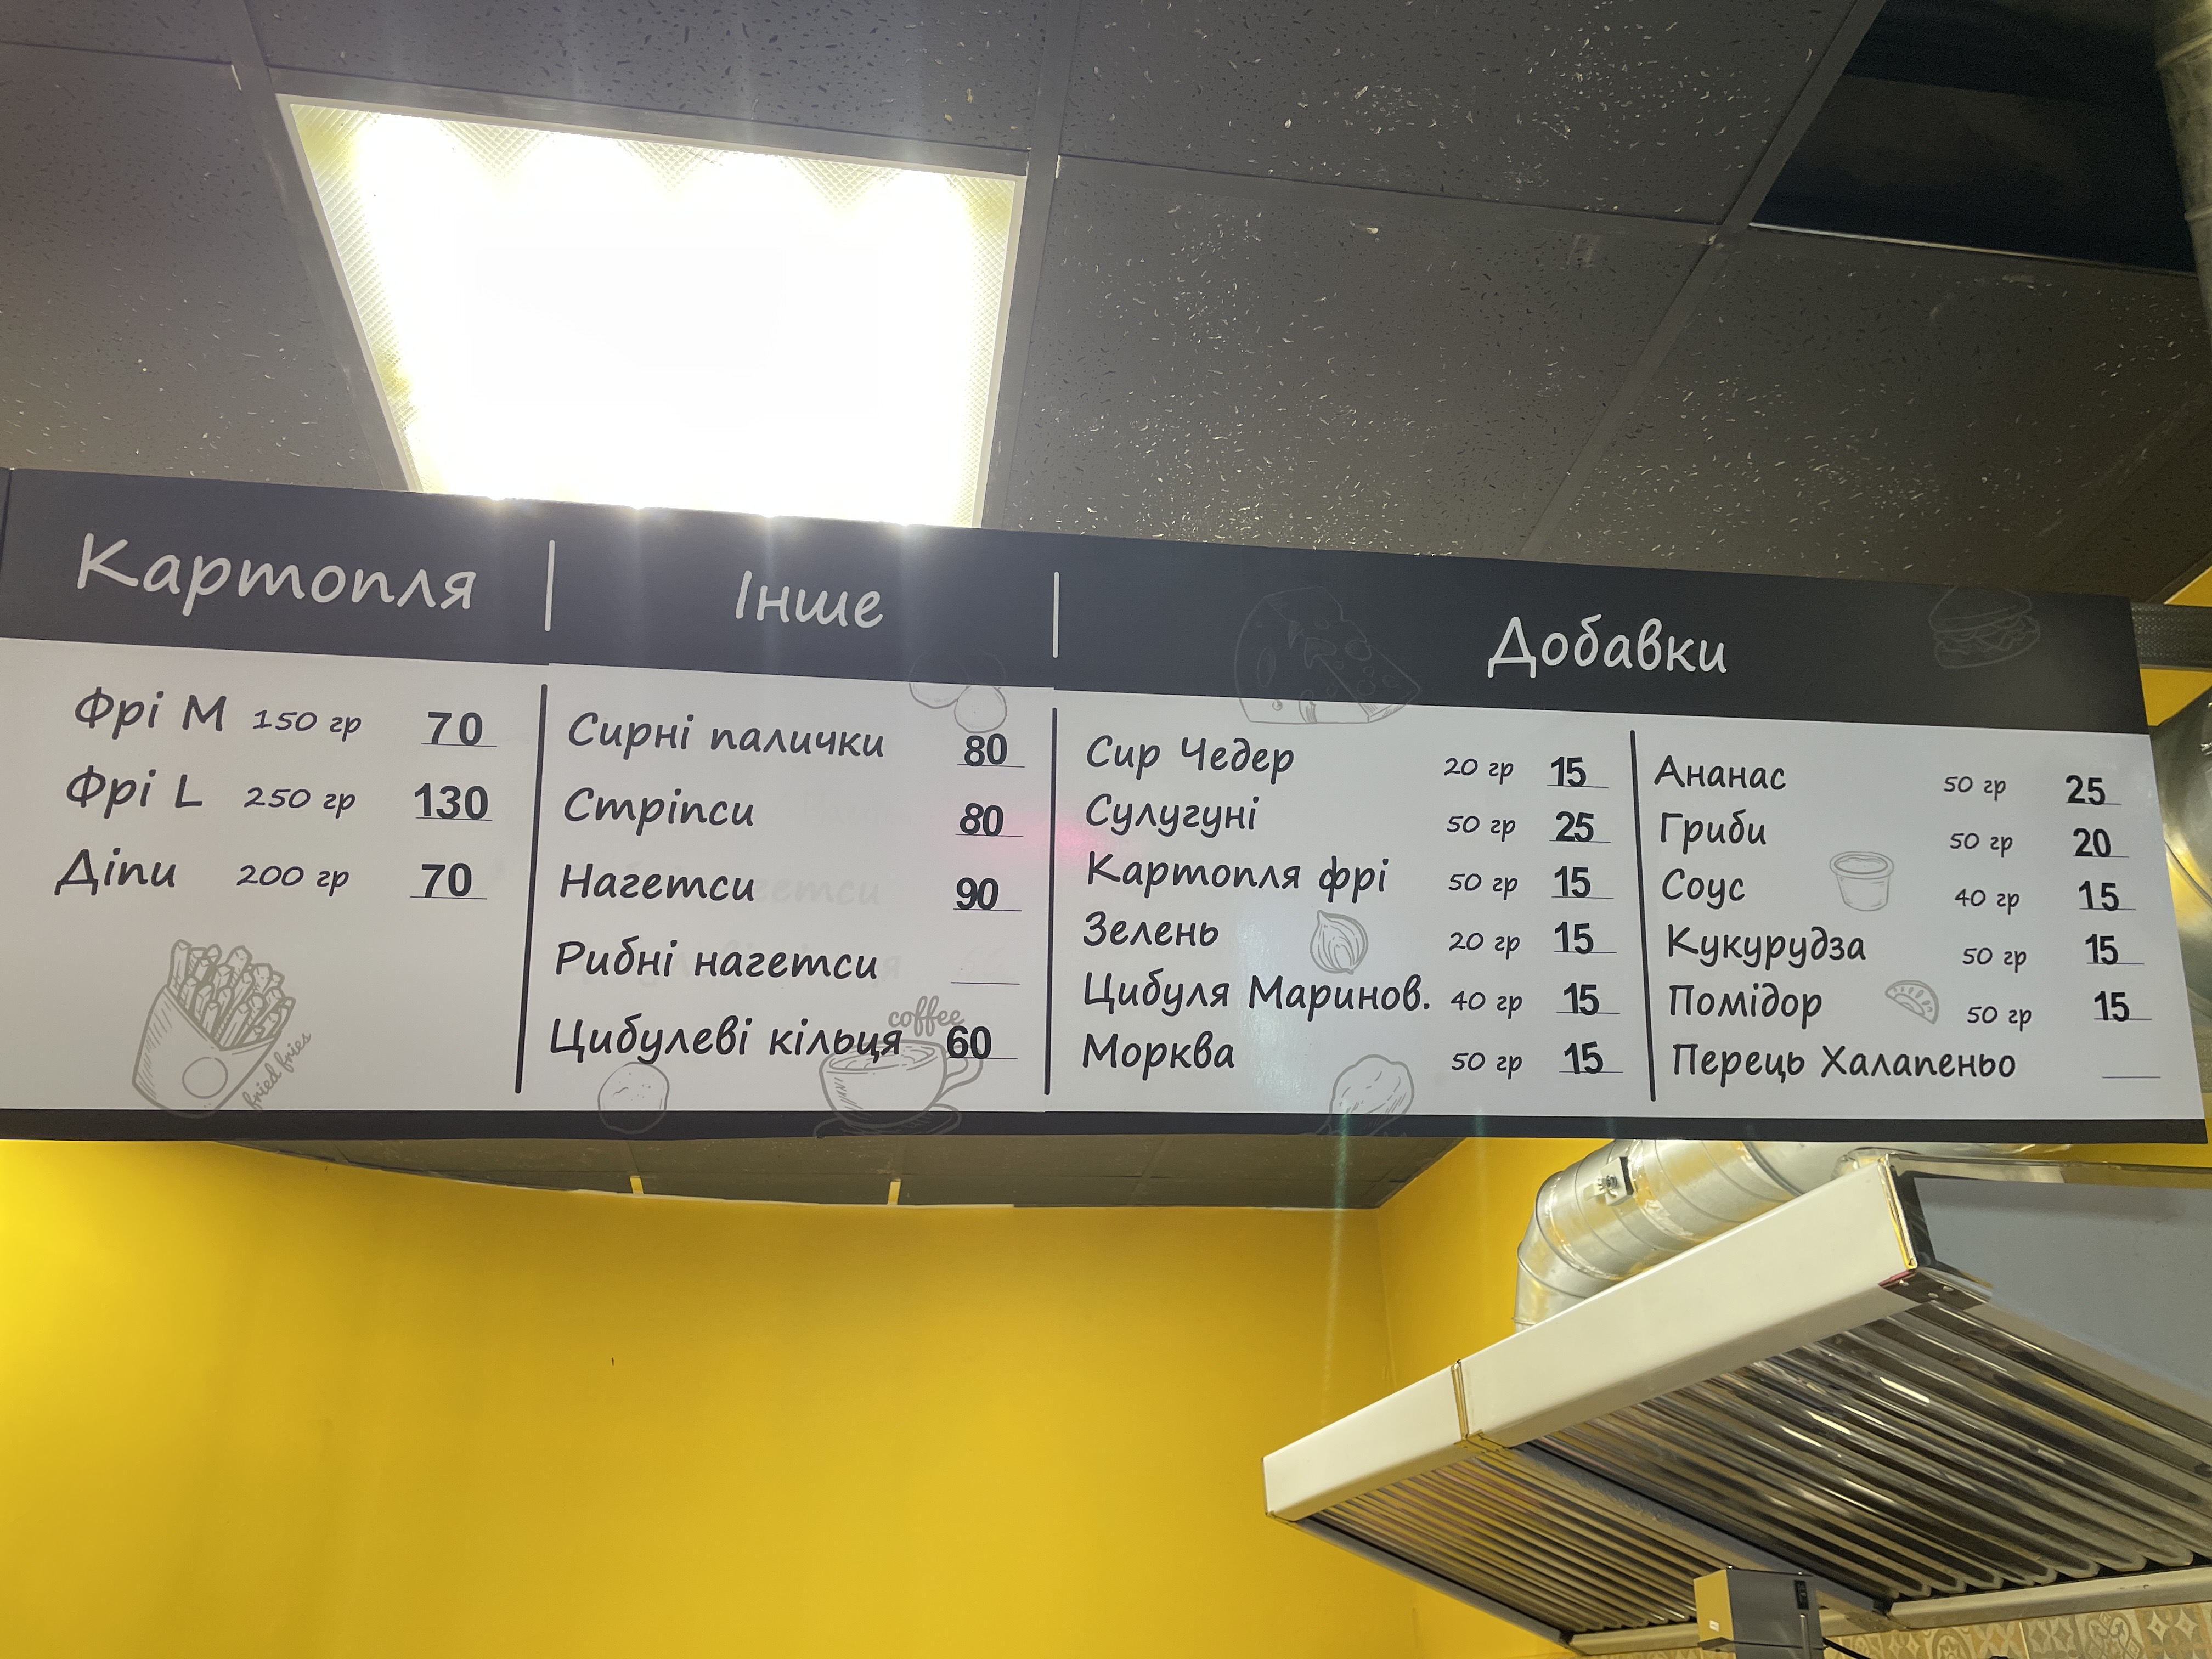 Картопля
Фрі М 150 гр 70
Фрі L 250 гр 130
Діпи 200 гр 70
fried fries
Інше
Сирні палички 80
Стріпси 80
Нагетси 90
Рибні нагетси
Цибулеві кільця 60
coffee
Добавки
Сир Чедер 20 гр 15
Сулугуні 50 гр 25
Картопля фрі 50 гр 15
Зелень 20 гр 15
Цибуля Маринов. 40 гр 15
Морква 50 гр 15
Ананас 50 гр 25
Гриби 50 гр 20
Соус 40 гр 15
Кукурудза 50 гр 15
Помідор 50 гр 15
Перець Халапеньо